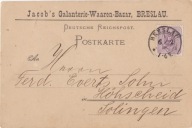 Jacob's Galanterie-Waaren-Bazar, BRESLAU.
DEUTSCHE REICHSPOST.
POSTKARTE
An Herrn
Ferd. Evert. Sohn
Höhscheid
Solingen
BRESLAU